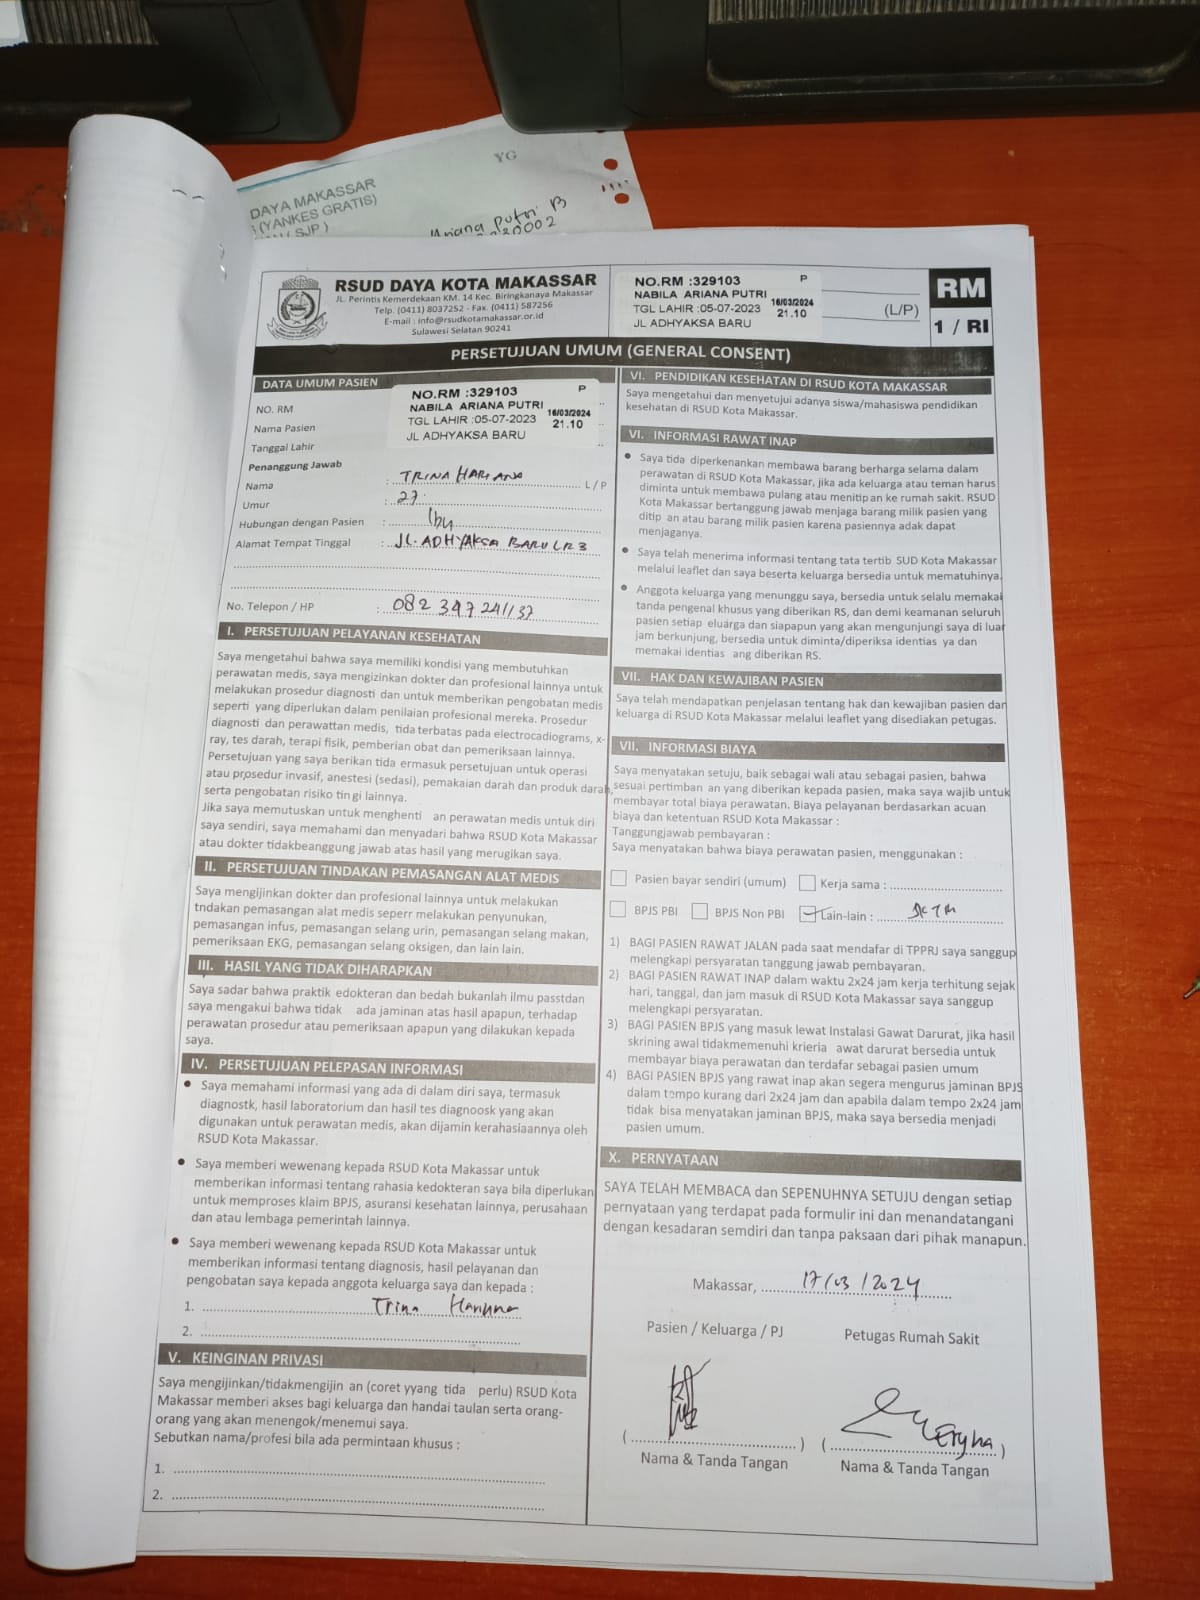 YG
DAYA MAKASSAR
(YANKES GRATIS)
( SJP )
Ariana Putri B
20002
RSUD DAYA KOTA MAKASSAR
JL. Perintis Kemerdekaan KM. 14 Kec. Biringkanaya Makassar
Telp. (0411) 8037252 - Fax. (0411) 587256
E-mail : info@rsudkotamakassar.or.id
Sulawesi Selatan 90241
NO.RM :329103 P
NABILA ARIANA PUTRI
TGL LAHIR :05-07-2023 16/03/2024
JL ADHYAKSA BARU 21.10
(L/P)
RM
1 / RI
PERSETUJUAN UMUM (GENERAL CONSENT)
DATA UMUM PASIEN
NO. RM
Nama Pasien
Tanggal Lahir
NO.RM :329103 P
NABILA ARIANA PUTRI 16/03/2024
TGL LAHIR :05-07-2023 21.10
JL ADHYAKSA BARU
Penanggung Jawab
Nama : TRINA HARIANA L / P
Umur : 27
Hubungan dengan Pasien : Ibu
Alamat Tempat Tinggal : JL. ADHYAKSA BARU LR 3
No. Telepon / HP : 082 347 241 137
I. PERSETUJUAN PELAYANAN KESEHATAN
Saya mengetahui bahwa saya memiliki kondisi yang membutuhkan
perawatan medis, saya mengizinkan dokter dan profesional lainnya untuk
melakukan prosedur diagnosti dan untuk memberikan pengobatan medis
seperti yang diperlukan dalam penilaian profesional mereka. Prosedur
diagnosti dan perawattan medis, tida terbatas pada electrocadiograms, x-
ray, tes darah, terapi fisik, pemberian obat dan pemeriksaan lainnya.
Persetujuan yang saya berikan tida ermasuk persetujuan untuk operasi
atau prosedur invasif, anestesi (sedasi), pemakaian darah dan produk darah,
serta pengobatan risiko tin gi lainnya.
Jika saya memutuskan untuk menghenti an perawatan medis untuk diri
saya sendiri, saya memahami dan menyadari bahwa RSUD Kota Makassar
atau dokter tidakbeanggung jawab atas hasil yang merugikan saya.
II. PERSETUJUAN TINDAKAN PEMASANGAN ALAT MEDIS
Saya mengijinkan dokter dan profesional lainnya untuk melakukan
tndakan pemasangan alat medis seperr melakukan penyunukan,
pemasangan infus, pemasangan selang urin, pemasangan selang makan,
pemeriksaan EKG, pemasangan selang oksigen, dan lain lain.
III. HASIL YANG TIDAK DIHARAPKAN
Saya sadar bahwa praktik edokteran dan bedah bukanlah ilmu passtdan
saya mengakui bahwa tidak ada jaminan atas hasil apapun, terhadap
perawatan prosedur atau pemeriksaan apapun yang dilakukan kepada
saya.
IV. PERSETUJUAN PELEPASAN INFORMASI
• Saya memahami informasi yang ada di dalam diri saya, termasuk
diagnostk, hasil laboratorium dan hasil tes diagnoosk yang akan
digunakan untuk perawatan medis, akan dijamin kerahasiaannya oleh
RSUD Kota Makassar.
• Saya memberi wewenang kepada RSUD Kota Makassar untuk
memberikan informasi tentang rahasia kedokteran saya bila diperlukan
untuk memproses klaim BPJS, asuransi kesehatan lainnya, perusahaan
dan atau lembaga pemerintah lainnya.
• Saya memberi wewenang kepada RSUD Kota Makassar untuk
memberikan informasi tentang diagnosis, hasil pelayanan dan
pengobatan saya kepada anggota keluarga saya dan kepada :
1. Trina Hariana
2.
V. KEINGINAN PRIVASI
Saya mengijinkan/tidakmengijin an (coret yyang tida perlu) RSUD Kota
Makassar memberi akses bagi keluarga dan handai taulan serta orang-
orang yang akan menengok/menemui saya.
Sebutkan nama/profesi bila ada permintaan khusus :
1.
2.
VI. PENDIDIKAN KESEHATAN DI RSUD KOTA MAKASSAR
Saya mengetahui dan menyetujui adanya siswa/mahasiswa pendidikan
kesehatan di RSUD Kota Makassar.
VI. INFORMASI RAWAT INAP
• Saya tida diperkenankan membawa barang berharga selama dalam
perawatan di RSUD Kota Makassar, jika ada keluarga atau teman harus
diminta untuk membawa pulang atau menitip an ke rumah sakit. RSUD
Kota Makassar bertanggung jawab menjaga barang milik pasien yang
ditip an atau barang milik pasien karena pasiennya adak dapat
menjaganya.
• Saya telah menerima informasi tentang tata tertib SUD Kota Makassar
melalui leaflet dan saya beserta keluarga bersedia untuk mematuhinya.
• Anggota keluarga yang menunggu saya, bersedia untuk selalu memakai
tanda pengenal khusus yang diberikan RS, dan demi keamanan seluruh
pasien setiap eluarga dan siapapun yang akan mengunjungi saya di luar
jam berkunjung, bersedia untuk diminta/diperiksa identias ya dan
memakai identias ang diberikan RS.
VII. HAK DAN KEWAJIBAN PASIEN
Saya telah mendapatkan penjelasan tentang hak dan kewajiban pasien dan
keluarga di RSUD Kota Makassar melalui leaflet yang disediakan petugas.
VII. INFORMASI BIAYA
Saya menyatakan setuju, baik sebagai wali atau sebagai pasien, bahwa
sesuai pertimban an yang diberikan kepada pasien, maka saya wajib untuk
membayar total biaya perawatan. Biaya pelayanan berdasarkan acuan
biaya dan ketentuan RSUD Kota Makassar :
Tanggungjawab pembayaran :
Saya menyatakan bahwa biaya perawatan pasien, menggunakan :
Pasien bayar sendiri (umum) Kerja sama :
BPJS PBI BPJS Non PBI Lain-lain : SKTM
1) BAGI PASIEN RAWAT JALAN pada saat mendafar di TPPRJ saya sanggup
melengkapi persyaratan tanggung jawab pembayaran.
2) BAGI PASIEN RAWAT INAP dalam waktu 2x24 jam kerja terhitung sejak
hari, tanggal, dan jam masuk di RSUD Kota Makassar saya sanggup
melengkapi persyaratan.
3) BAGI PASIEN BPJS yang masuk lewat Instalasi Gawat Darurat, jika hasil
skrining awal tidakmemenuhi krieria awat darurat bersedia untuk
membayar biaya perawatan dan terdafar sebagai pasien umum
4) BAGI PASIEN BPJS yang rawat inap akan segera mengurus jaminan BPJS
dalam tempo kurang dari 2x24 jam dan apabila dalam tempo 2x24 jam
tidak bisa menyatakan jaminan BPJS, maka saya bersedia menjadi
pasien umum.
X. PERNYATAAN
SAYA TELAH MEMBACA dan SEPENUHNYA SETUJU dengan setiap
pernyataan yang terdapat pada formulir ini dan menandatangani
dengan kesadaran semdiri dan tanpa paksaan dari pihak manapun.
Makassar, 17/03/2024
Pasien / Keluarga / PJ Petugas Rumah Sakit
Eryna
Nama & Tanda Tangan Nama & Tanda Tangan